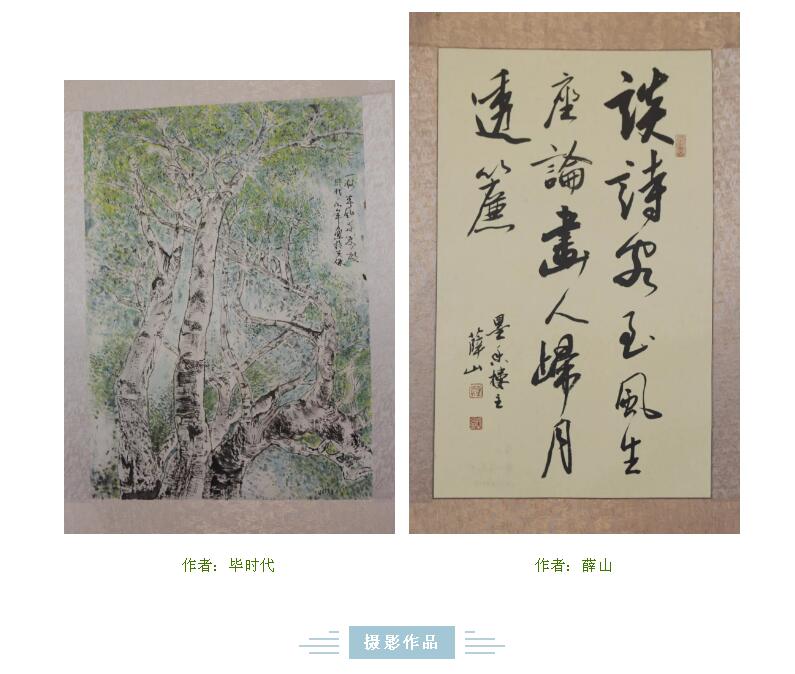 談詩客至風生
座論畫人歸月
透簾
墨香樓主
薛山
作者：毕时代
作者：薛山
摄影作品